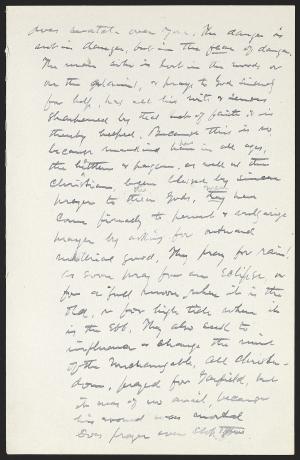 over you. The danger is
not in danger, but in the fear of danger.
The man who is lost in the woods or
on the , & prays to God sincerely
for help, has all his wits & senses
sharpened by that act of faith & is
thereby helped. Because this is so,
because mankind have in all ages,
the heathen & pagan, as well as the
Christian, been helped by sincere
prayer to their Gods, they have
come finally to pervert &
prayer by asking for outward
material good. They pray for rain!
as soon pray for an Eclipse, or
for a full moon when it is the
old, or for high tide when it
is the ebb. They also seek to
influence or change the mind
of the Unchangeable. All Christen-
dom, prayed for Garfield, but
it was of no avail, because
his wound was mortal
Does prayer ever